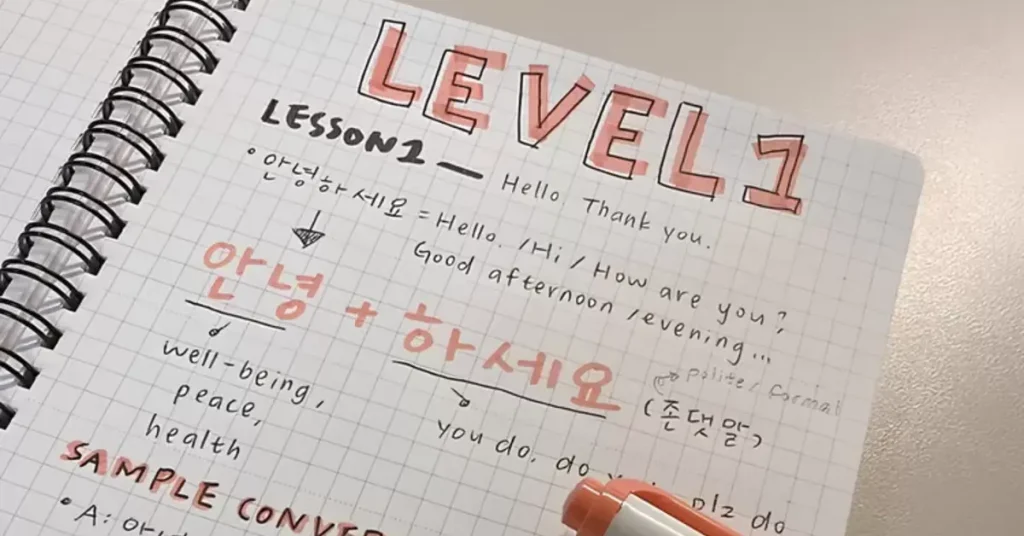 LEVEL 1
LESSON 1 — Hello. Thank you.
• 안녕하세요 = Hello. / Hi / How are you?
Good afternoon / evening...
안녕 + 하세요
polite / format
(존댓말)
well-being,
peace,
health
you do. do plz do
SAMPLE
• A: